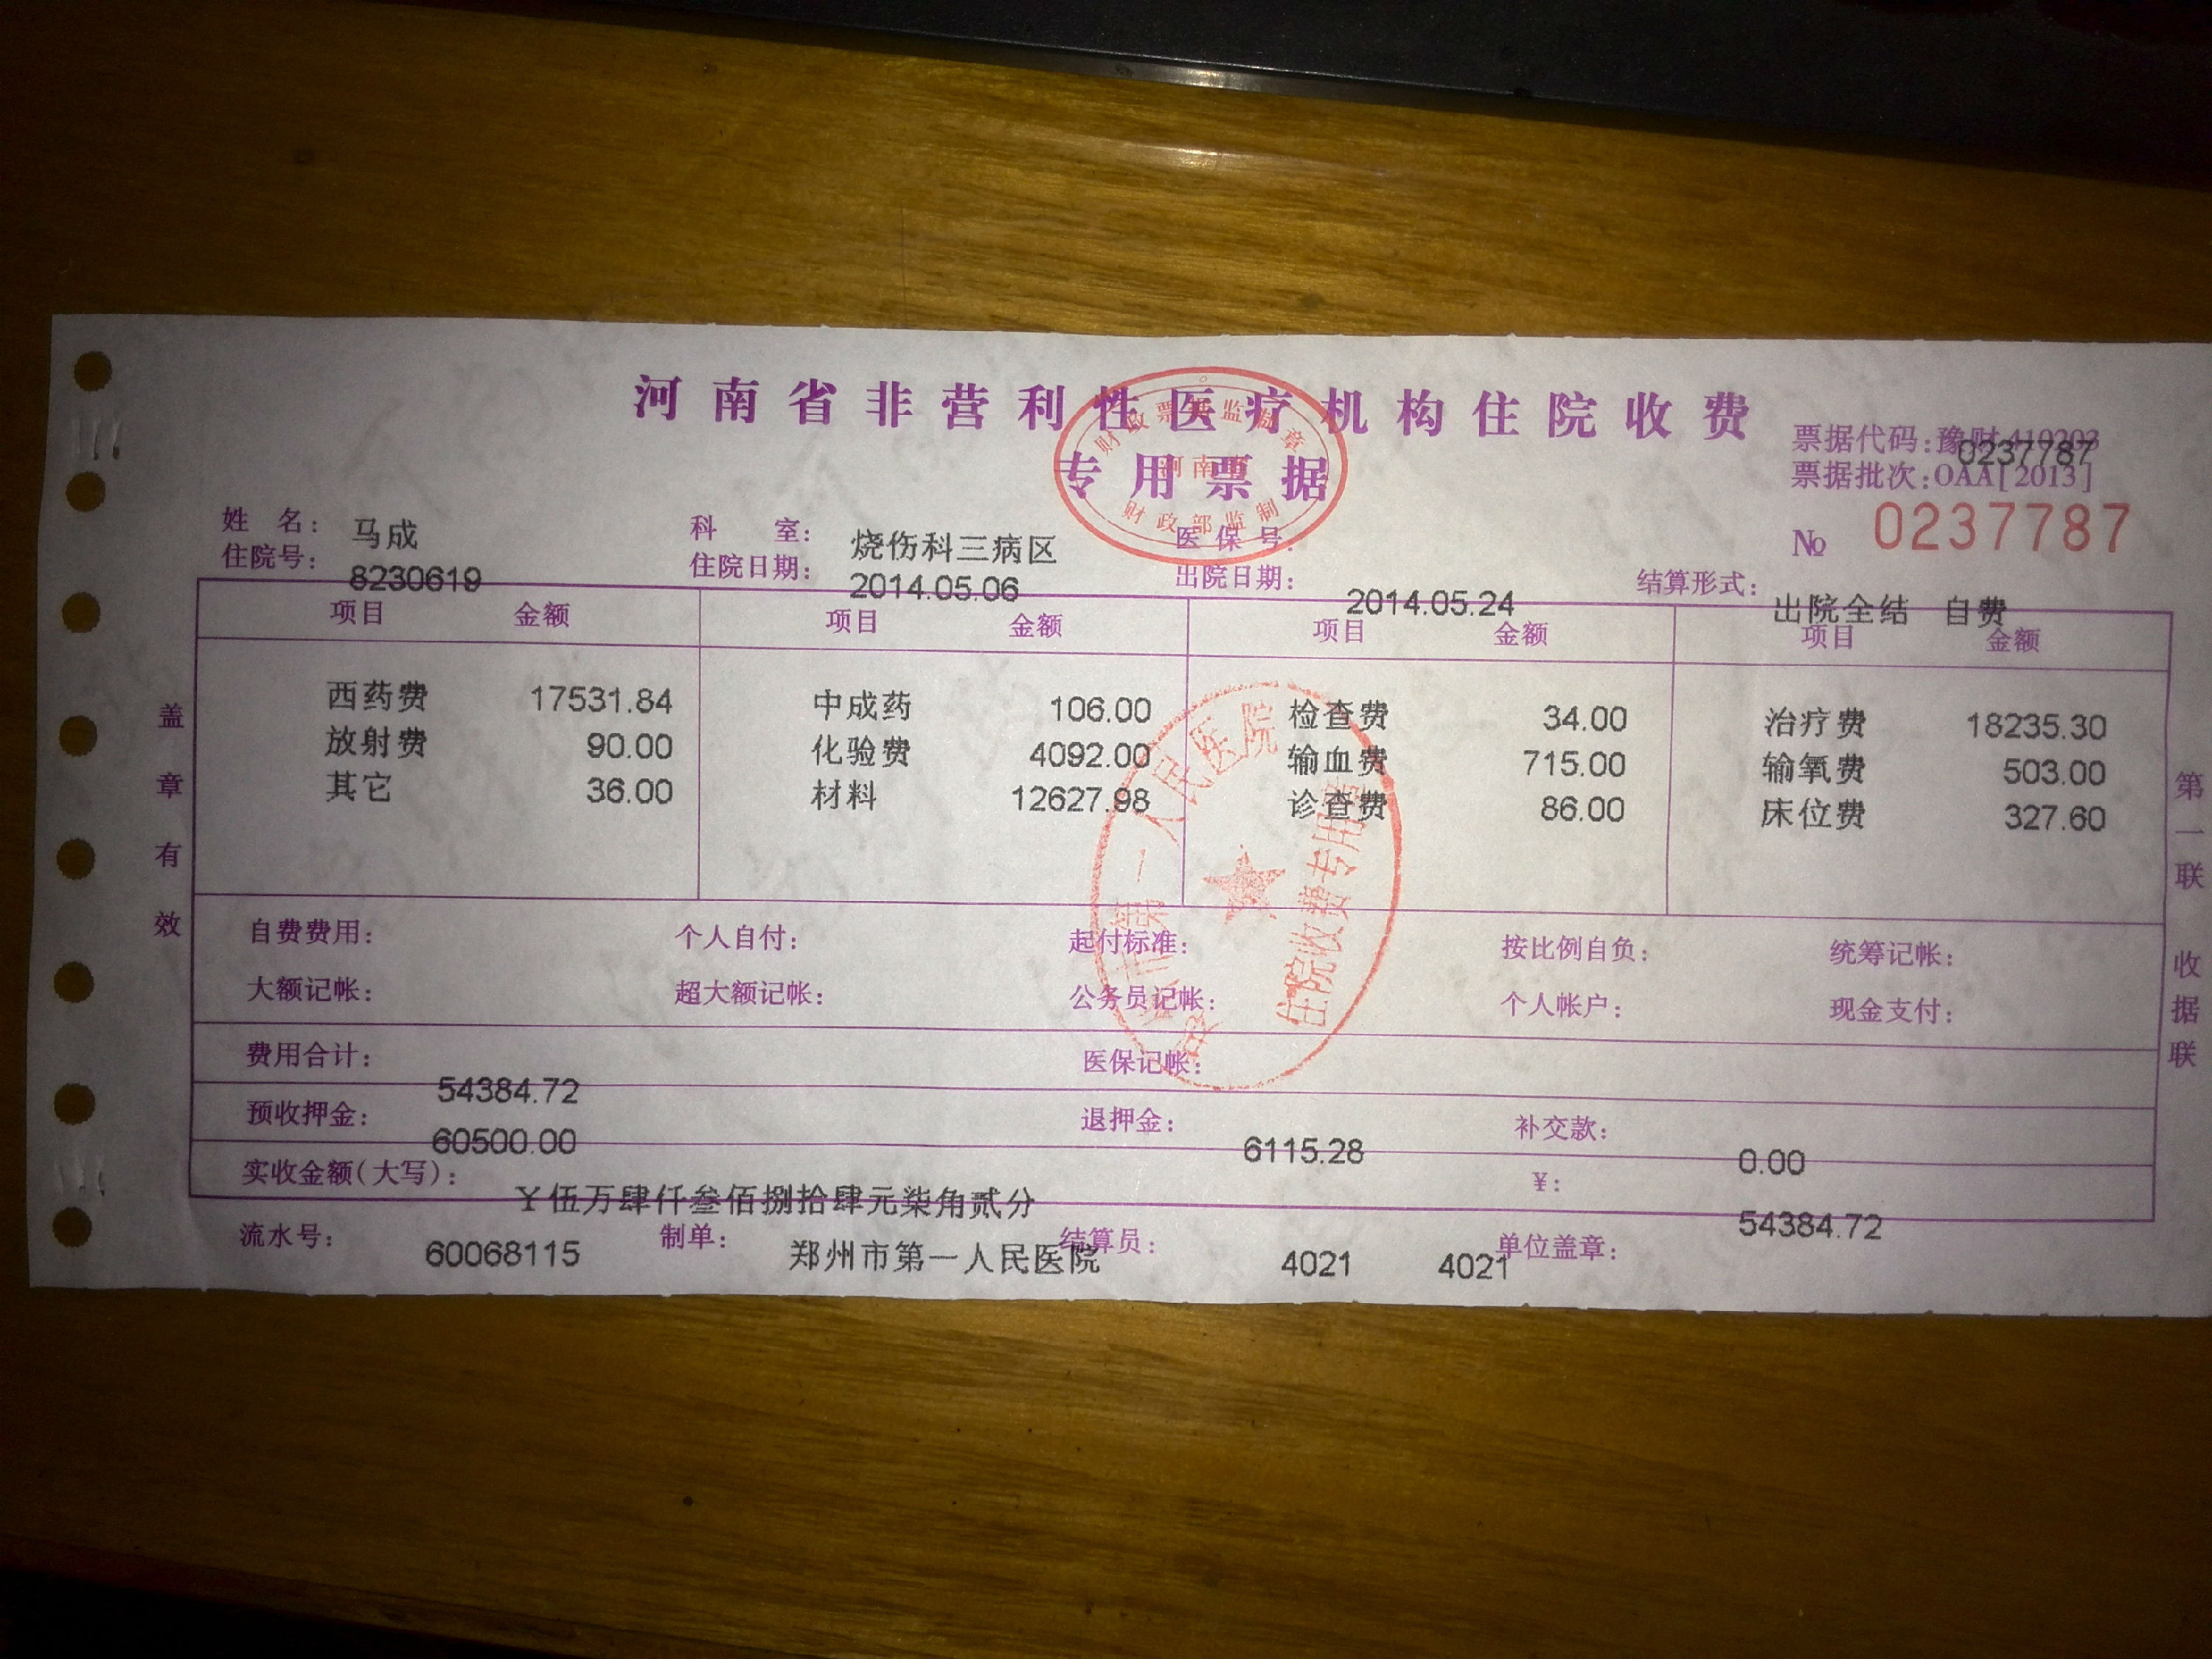 河南省非营利性医疗机构住院收费
专用票据
财政票据监制章
河南省
财政部监制
票据代码:豫财 410203
0237787
票据批次:OAA[2013]
№ 0237787
姓 名: 马成 科 室: 烧伤科三病区 医 保 号:
住院号: 8230619 住院日期: 2014.05.06 出院日期: 2014.05.24 结算形式: 出院全结 自费
项目 金额 项目 金额 项目 金额 项目 金额
西药费 17531.84 中成药 106.00 检查费 34.00 治疗费 18235.30
放射费 90.00 化验费 4092.00 输血费 715.00 输氧费 503.00
其它 36.00 材料 12627.98 诊查费 86.00 床位费 327.60
盖章有效
第一联 收据联
郑州市第一人民医院
住院收费专用章
自费费用: 个人自付: 起付标准: 按比例自负: 统筹记帐:
大额记帐: 超大额记帐: 公务员记帐: 个人帐户: 现金支付:
费用合计: 54384.72 医保记帐:
预收押金: 60500.00 退押金: 6115.28 补交款: 0.00
实收金额(大写): ￥伍万肆仟叁佰捌拾肆元柒角贰分 ¥: 54384.72
流水号: 60068115 制单: 郑州市第一人民医院 结算员: 4021 4021 单位盖章: